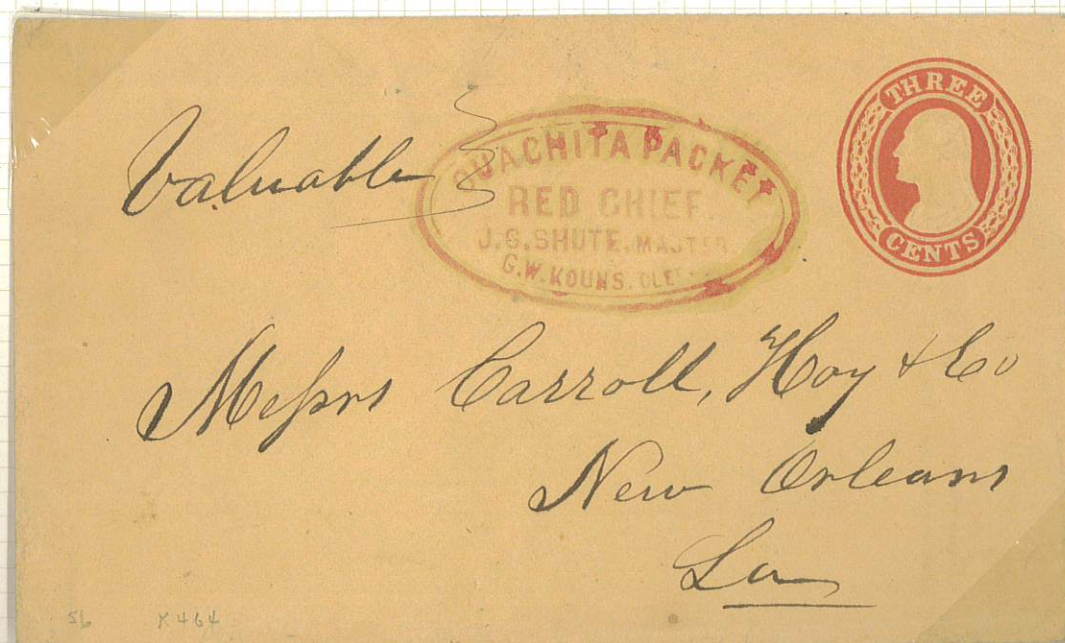 Valuable
OUACHITA PACKET
RED CHIEF.
J.G. SHUTE. MASTER.
G.W. KOUNS. CLERK
THREE
CENTS
Messrs Carroll, Hoy & Co
New Orleans
La
56 K464